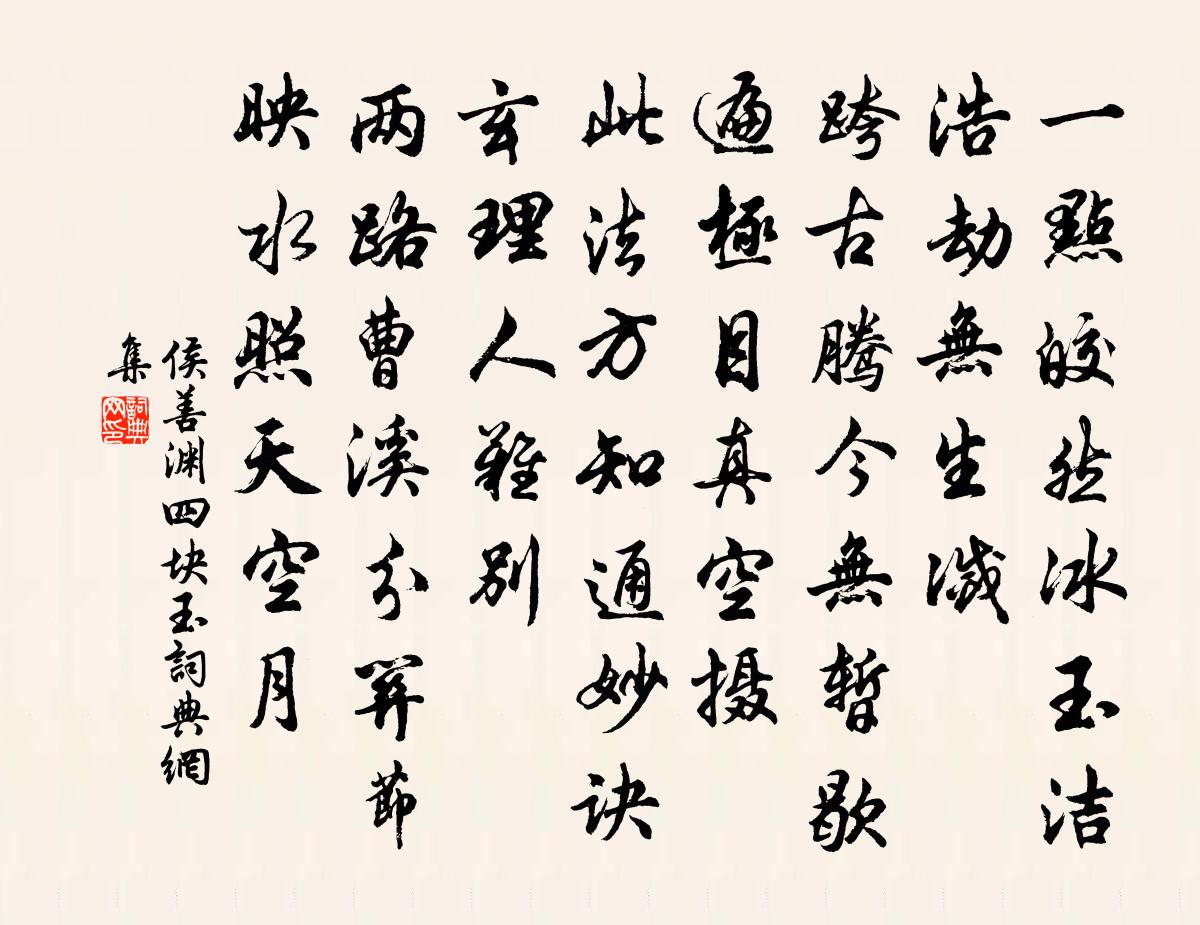 一點皎然冰玉洁
浩劫無生滅
跨古腾今無暫歇
遍極目真空摄
此法方知通妙诀
玄理人難别
两路曹溪分関節
映水照天空月
侯善渊四块玉詞典網
集
詞典网印